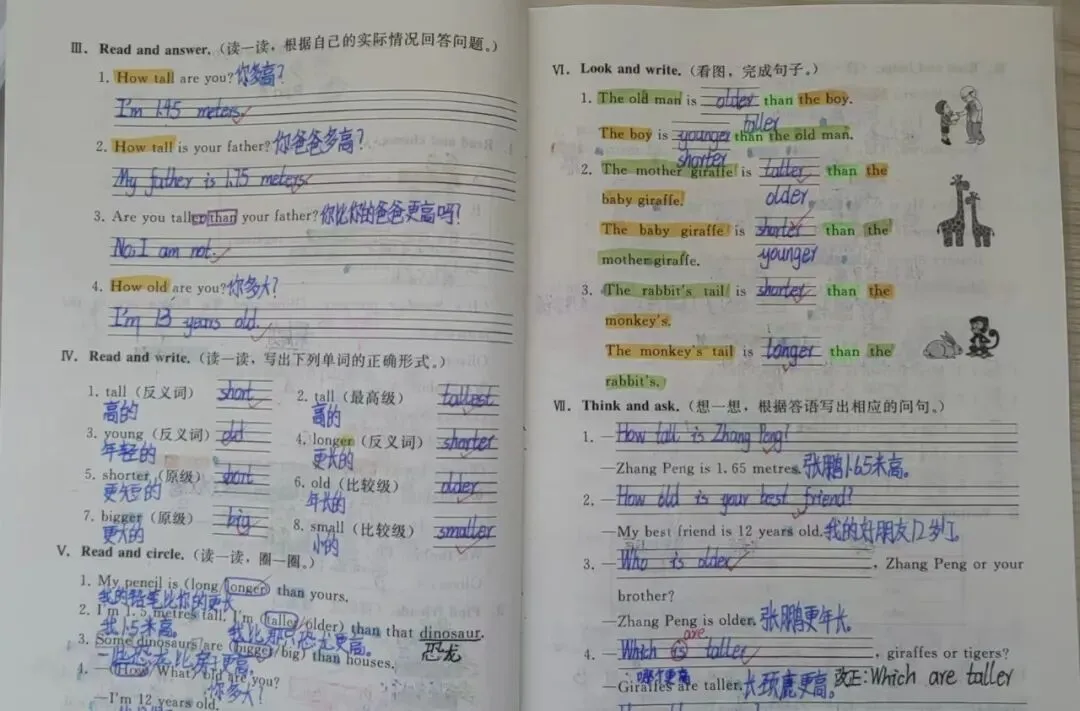 Ⅲ. Read and answer. (读一读，根据自己的实际情况回答问题。)
1. How tall are you? 你多高?
I'm 1.45 meters.
2. How tall is your father? 你爸爸多高?
My father is 1.75 meters.
3. Are you taller than your father? 你比你的爸爸更高吗?
No, I am not.
4. How old are you? 你多大?
I'm 13 years old.
Ⅳ. Read and write. (读一读，写出下列单词的正确形式。)
1. tall (反义词) short 2. tall (最高级) tallest
高的 高的
3. young (反义词) old 4. longer (反义词) shorter
年轻的 更长的
5. shorter (原级) short 6. old (比较级) older
更短的 年长的
7. bigger (原级) big 8. small (比较级) smaller
更大的 小的
Ⅴ. Read and circle. (读一读，圈一圈。)
1. My pencil is (long/longer) than yours.
我的铅笔比你的更长
2. I'm 1.5 metres tall. I'm (taller/older) than that dinosaur.
我1.5米高。 我比那只恐龙更高。 恐龙
3. Some dinosaurs are (bigger/big) than houses.
一些恐龙比房子更高。
4. —(How/What) old are you?
你多大?
—I'm 12 years old.
Ⅵ. Look and write. (看图，完成句子。)
1. The old man is older than the boy.
taller
The boy is younger than the old man.
shorter
2. The mother giraffe is taller than the
baby giraffe. older
The baby giraffe is shorter than the
mother giraffe. younger
3. The rabbit's tail is shorter than the
monkey's.
The monkey's tail is longer than the
rabbit's.
Ⅶ. Think and ask. (想一想，根据答语写出相应的问句。)
1. —How tall is Zhang Peng?
—Zhang Peng is 1.65 metres. 张鹏1.65米高。
2. —How old is your best friend?
—My best friend is 12 years old. 我的好朋友12岁了。
3. —Who is older, Zhang Peng or your
brother?
—Zhang Peng is older. 张鹏更年长。
are
4. —Which is taller, giraffes or tigers?
哪个更高
—Giraffes are taller. 长颈鹿更高。 改正: Which are taller